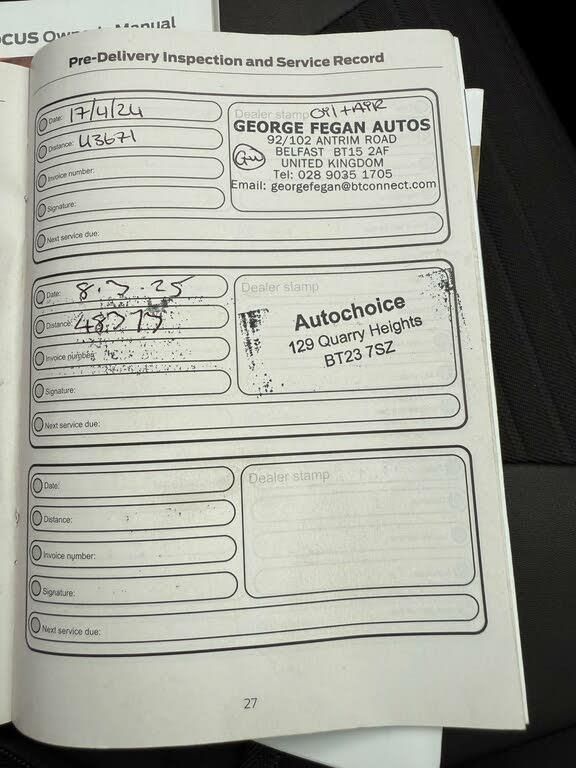 CUS Owner's Manual
Pre-Delivery Inspection and Service Record
Date: 17/4/24
Distance: 43671
Invoice number:
Signature:
Next service due:
Dealer stamp OIL + AIR
GEORGE FEGAN AUTOS
92/102 ANTRIM ROAD
BELFAST BT15 2AF
UNITED KINGDOM
Tel: 028 9035 1705
Email: georgefegan@btconnect.com
Date: 8.3.25
Distance:
Invoice number:
Signature:
Next service due:
Dealer stamp
Autochoice
129 Quarry Heights
BT23 7SZ
Date:
Distance:
Invoice number:
Signature:
Next service due:
Dealer stamp
27